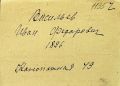 1135 г
Васильев
Иван Федорович
1896
49